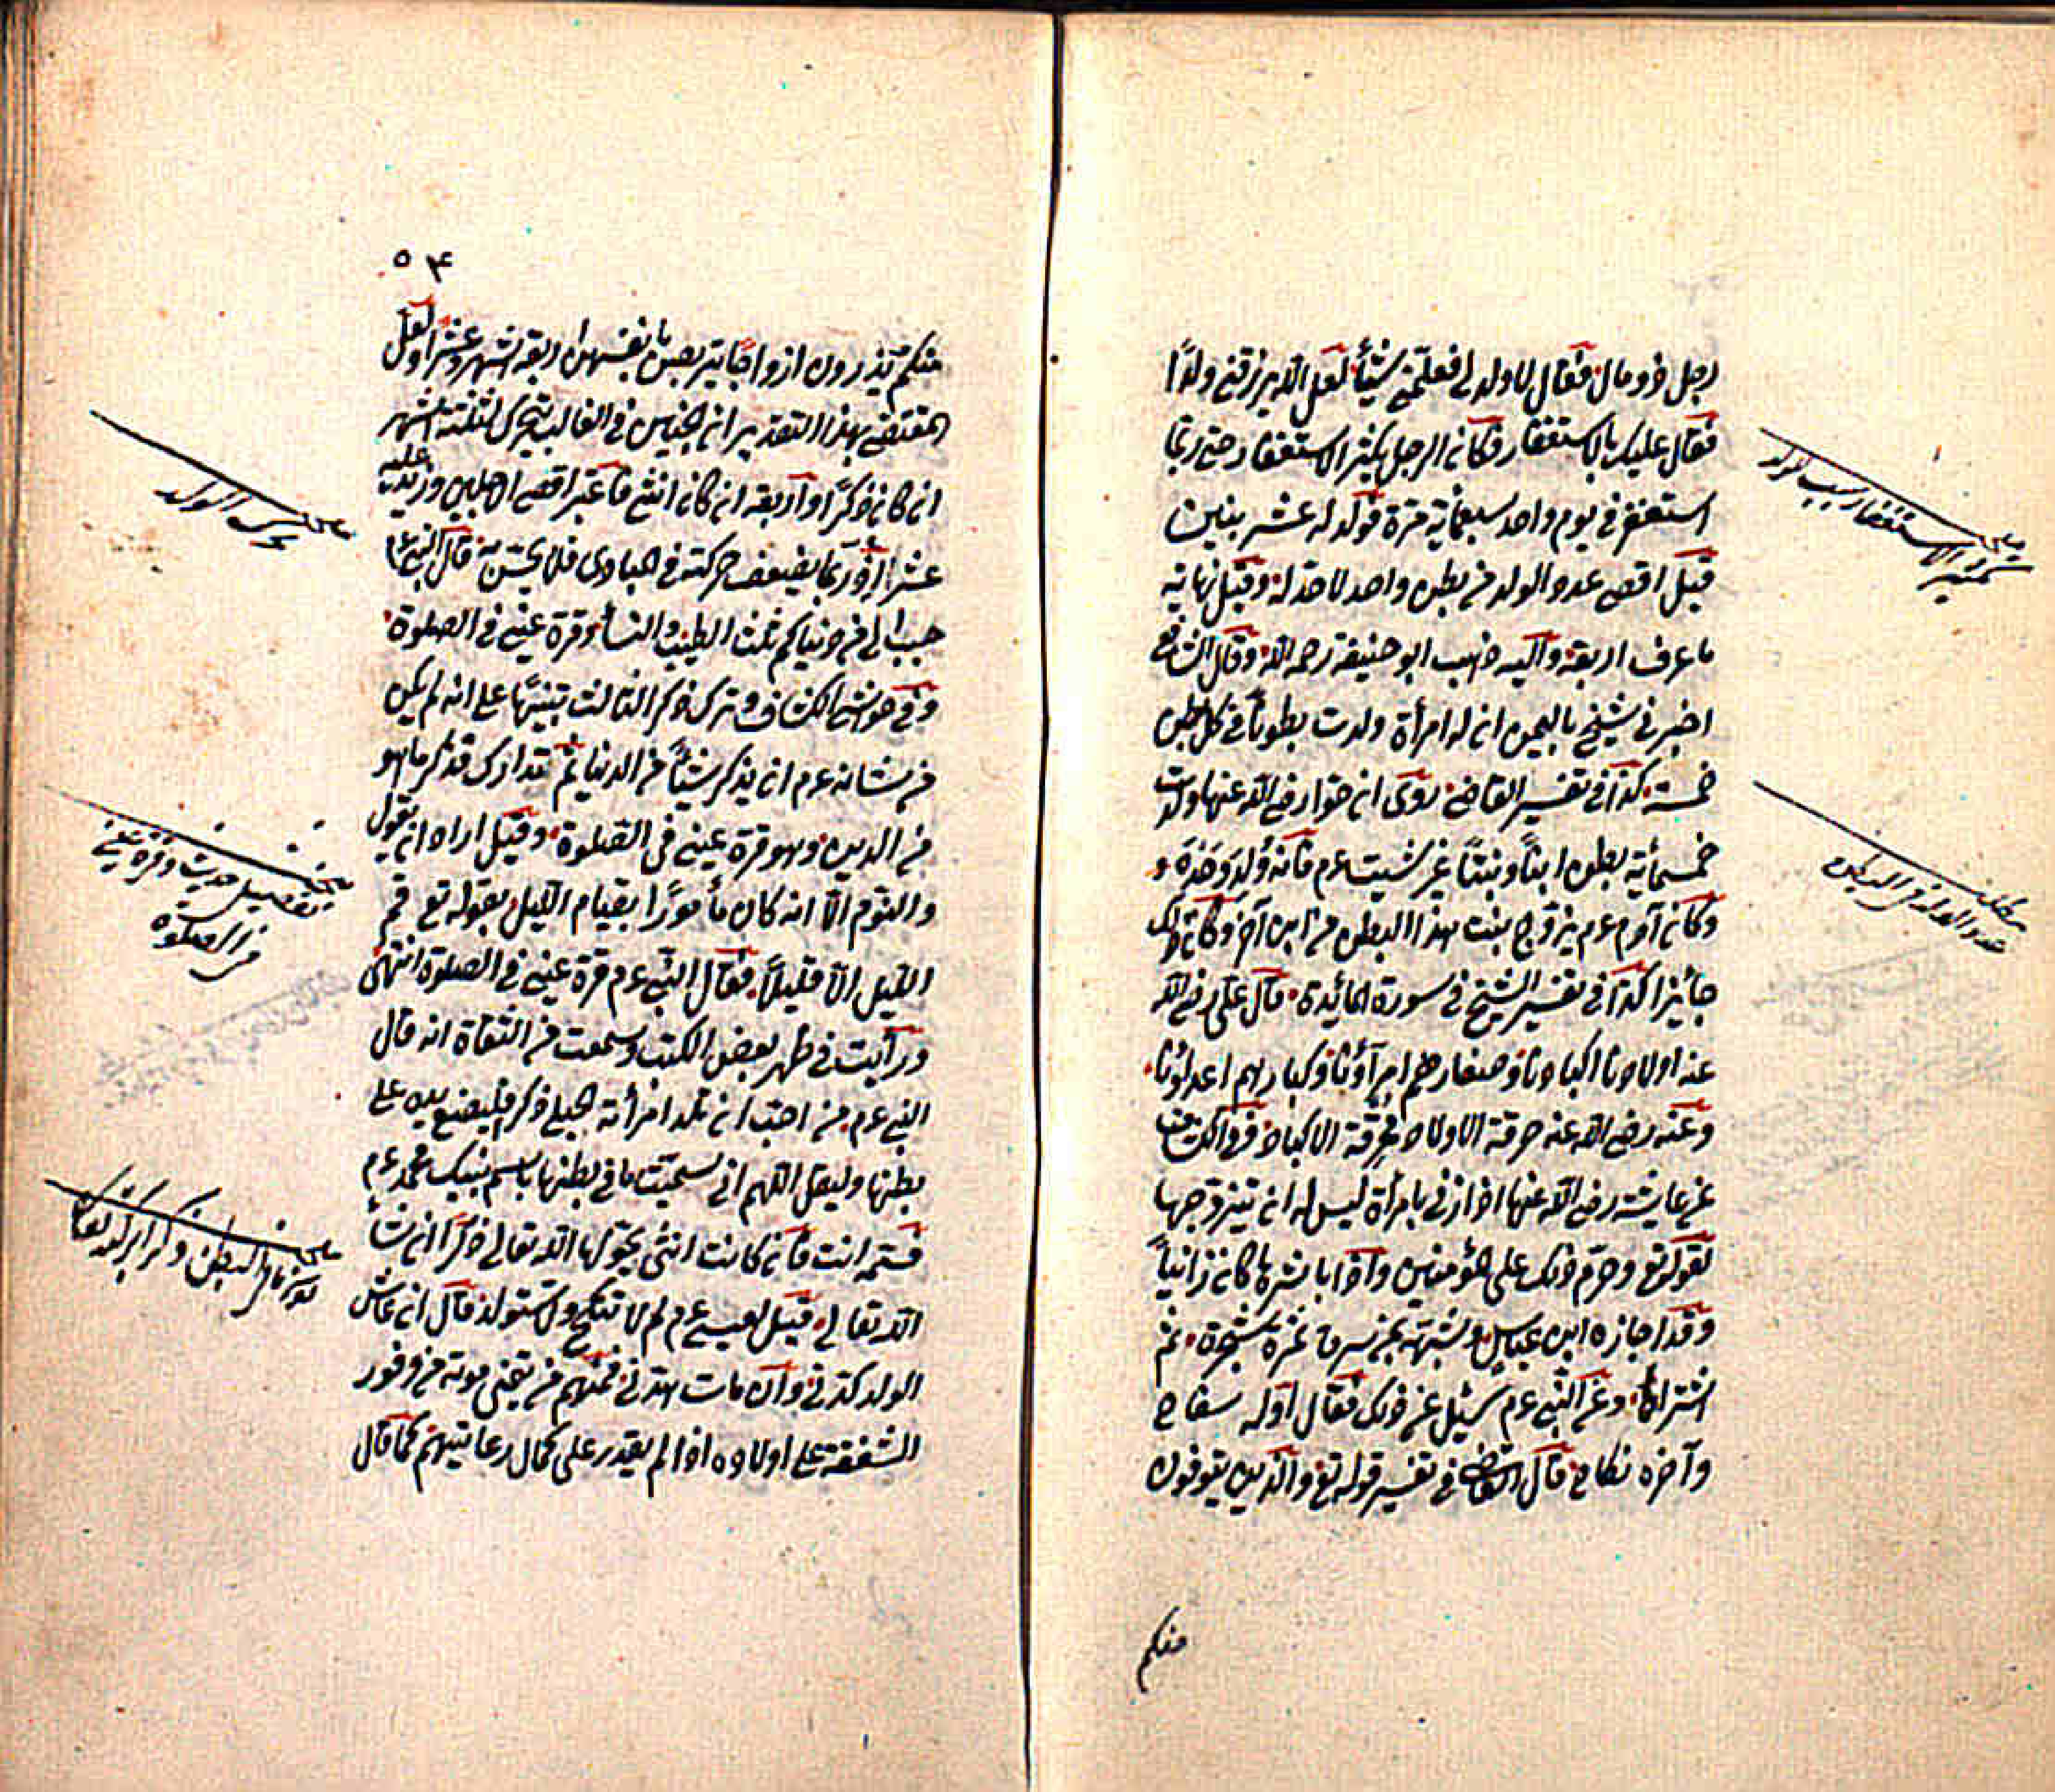 رجل ذو مال فقال لا ولد لي فعلمني شيئاً لعل الله يرزقني ولداً
فقال عليك بالاستغفار فكان الرجل يكثر الاستغفار حتى ربما
استغفر في يوم واحد سبعمائة مرة فولد له عشر بنين
قيل اقصى عدد الولد في بطن واحد لا حد له وقيل نهاية
ما عرف اربعة واليه ذهب ابو حنيفة رحمه الله وقال الشافعي
اخبرني شيخ باليمن ان له امرأة ولدت بطوناً في كل بطن
خمسة كذا في تفسير القاضي روى ان حوا رضي الله عنها ولدت
خمسمائة بطن ابناً وبنتاً غير شيث عم فانه ولد وحده
وكان آدم عم يزوج بنت هذا البطن من ابن آخر وكان ذلك
جائزا كذا في تفسير الشيخ في سورة المائدة قال علي رضي الله
عنه اولادنا اكبادنا وصغارهم امرآؤنا وكبارهم اعداؤنا
وعنه رضي الله عنه حرقة الاولاد محرقة الاكباد وفي الكشاف
عن عايشة رضي الله عنها اذا زنى بامرأة ليس له ان يتزوجها
لقوله تع وحرم ذلك على المؤمنين واذا باشرها كان زانياً
وقد اجازه ابن عباس وشبهه بمن سرق ثمرة شجرة ثم
اشتراها وعن النبي عم سئل عن ذلك فقال اوله سفاح
وآخره نكاح قال القاضي في تفسير قوله تع والذين يتوفون
منكم
تكثير الاستغفار سبب الولد
عدد الولد في البطن
٥٤
منكم يذرون ازواجاً يتربصن بانفسهن اربعة اشهر وعشراً ولعل
المقتضي بهذا التقدير ان الجنين في الغالب يتحرك لثلثة اشهر
ان كان ذكراً او اربعة ان كان انثى فاعتبر اقصى الاجلين وزيد عليه
عشر اذ ربما يضعف حركته في المبادي فلا يحس به قال النبي عم
حبب الي من دنياكم ثلث الطيب والنسأ وقرة عيني في الصلوة
وفي حواشي الكشاف وترك ذكر الثالث تنبيهاً على انه لم يكن
من شانه عم ان يذكر شيئاً من الدنيا ثم تدارك قد ذكر ما هو
من الدين وهو قرة عيني في الصلوة وقيل اراد ان يقول
والنوم الا انه كان مأموراً بقيام الليل بقوله تع قم
الليل الا قليلاً فقال النبي عم قرة عيني في الصلوة انتهى
ورأيت في ظهر بعض الكتب وسمعت من الثقاة انه قال
النبي عم من احب ان تلد امرأته الحبلى ذكراً فليضع يده على
بطنها وليقل اللهم اني سميت ما في بطنها باسم نبيك محمد عم
فسمه انت فان كانت انثى يحولها الله تعالى ذكراً ان شأ
الله تعالى قيل لعيسى عم لم لا تنكح ولا تستولد قال ان عاش
الولد كدني وان مات هدني فمنهم من يتمنى موته من وفور
الشفقة على اولاده اذا لم يقدر على كمال رعايتهم كما قال
تحرك الولد
تفصيل حديث وقرة عيني
في الصلوة